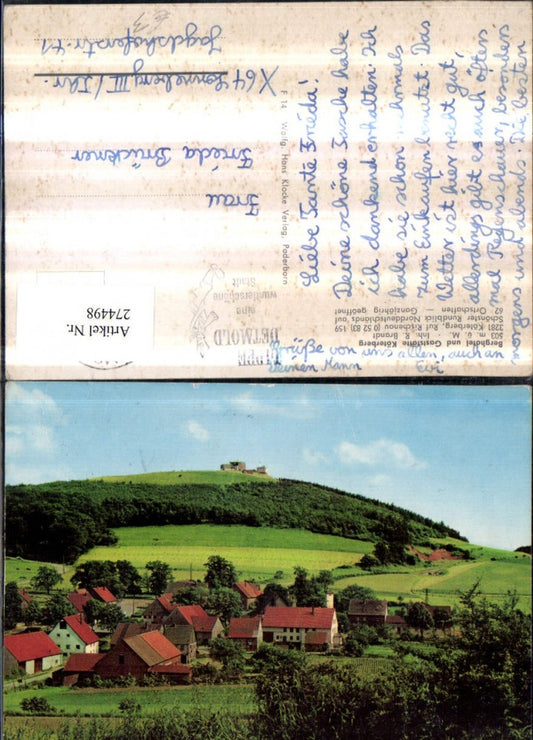 Liebe Tante Frieda!
Deine schöne Tasche habe
ich dankend erhalten. Ich
habe sie schon mehrmals
zum Einkaufen benutzt. Das
Wetter ist hier recht gut,
allerdings gibt es auch öfters
mal Regenschauer, besonders
morgens und abends. Die besten
Grüße von uns allen, auch an
deinen Mann
Evi
Berghotel und Gaststätte Köterberg
503 m ü. M. - Inh. R. Brandt
3281 Köterberg, Ruf Rischenau (0 52 83) 159
Schönster Rundblick Norddeutschlands auf
62 Ortschaften — Ganzjährig geöffnet
F 14 Wolfg. Hans Klocke Verlag, Paderborn
LIPPE
DETMOLD
eine
wunderschöne
Stadt
Frau
Frieda Brückner
X 64 Sonneberg III / Thür.
Jagdshoferstr. 41
Artikel Nr.
274498